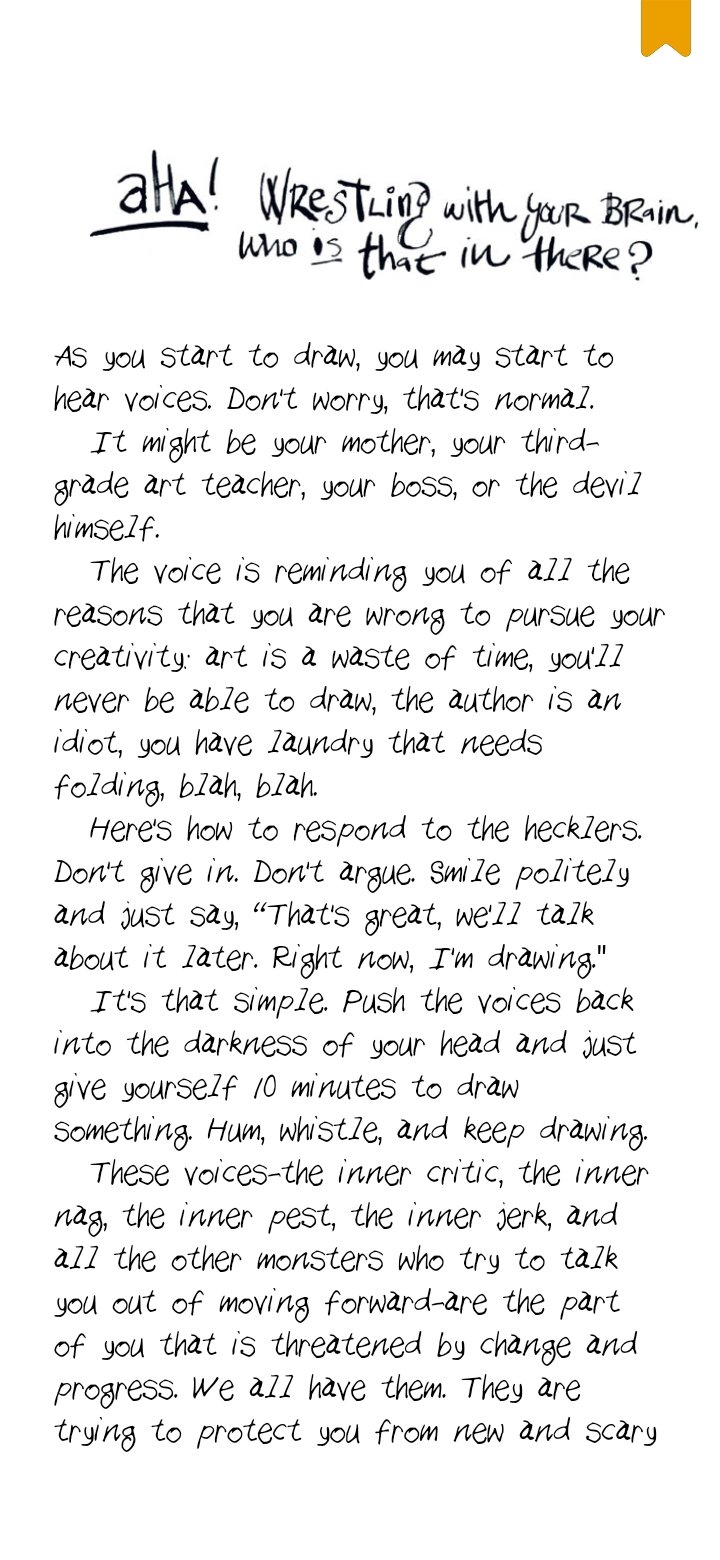 aHA! WRESTLing with youR BRain,
who is that in theRe?
As you start to draw, you may start to
hear voices. Don't worry, that's normal.
It might be your mother, your third-
grade art teacher, your boss, or the devil
himself.
The voice is reminding you of all the
reasons that you are wrong to pursue your
creativity: art is a waste of time, you'll
never be able to draw, the author is an
idiot, you have laundry that needs
folding, blah, blah.
Here's how to respond to the hecklers.
Don't give in. Don't argue. Smile politely
and just say, “That's great, we'll talk
about it later. Right now, I'm drawing."
It's that simple. Push the voices back
into the darkness of your head and just
give yourself 10 minutes to draw
something. Hum, whistle, and keep drawing.
These voices–the inner critic, the inner
nag, the inner pest, the inner jerk, and
all the other monsters who try to talk
you out of moving forward–are the part
of you that is threatened by change and
progress. We all have them. They are
trying to protect you from new and scary